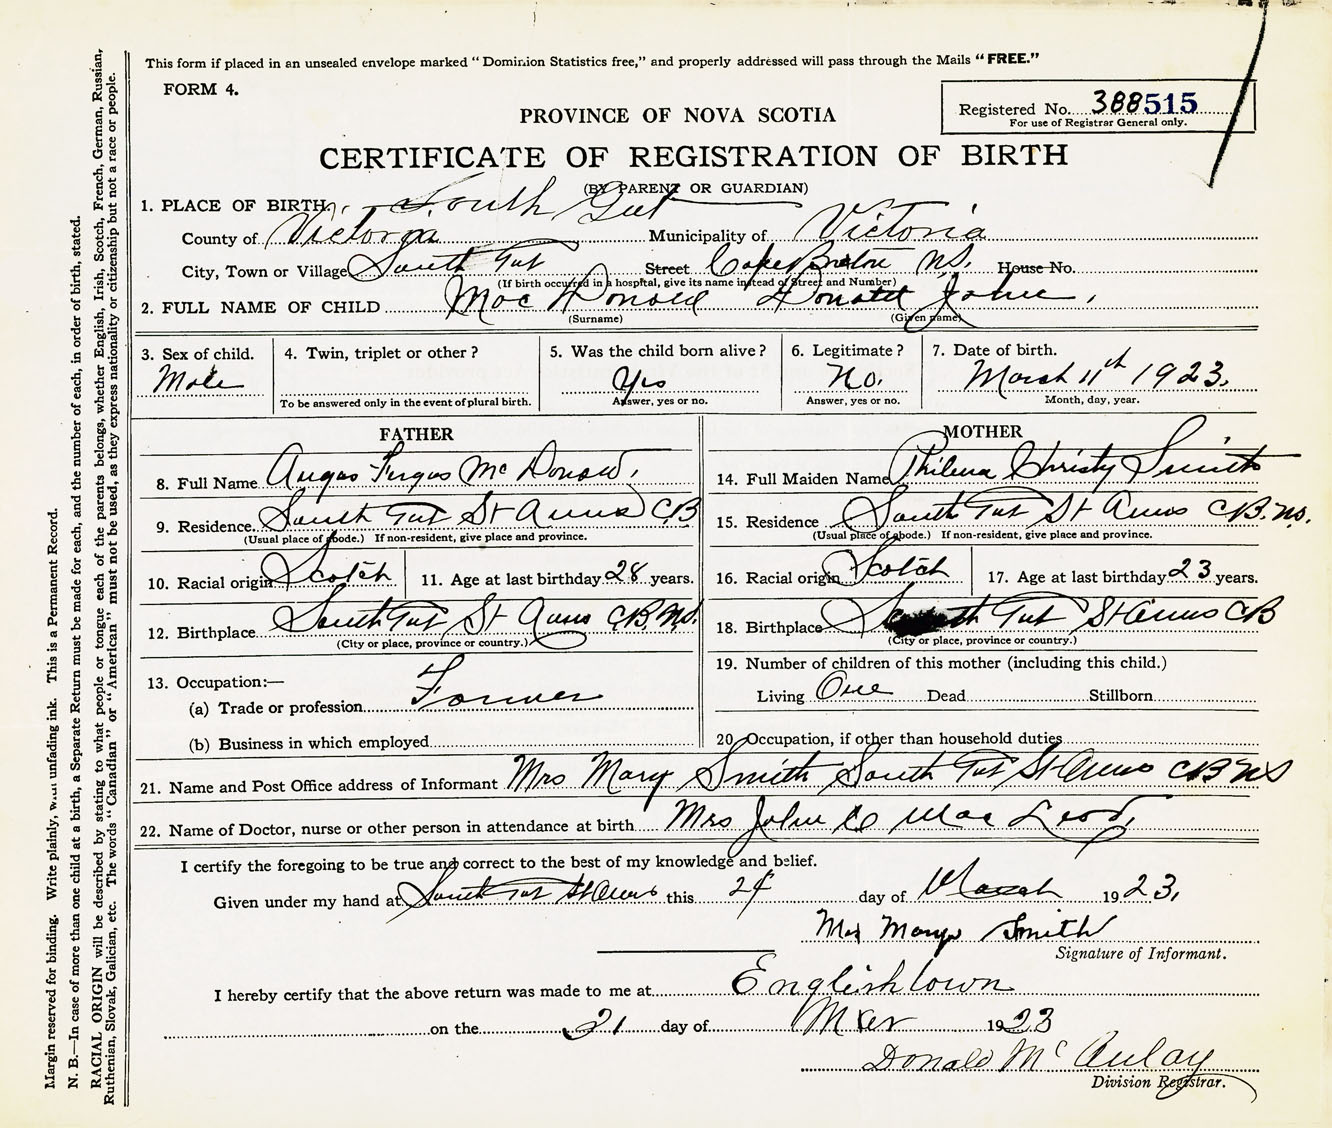 This form if placed in an unsealed envelope marked "Dominion Statistics free," and properly addressed will pass through the Mails "FREE."
FORM 4.
Registered No. 388515
For use of Registrar General only.
PROVINCE OF NOVA SCOTIA
CERTIFICATE OF REGISTRATION OF BIRTH
(BY PARENT OR GUARDIAN)
1. PLACE OF BIRTH, South Gut
County of Victoria Municipality of Victoria
City, Town or Village South Gut Street Cape Breton N.S. House No.
(If birth occurred in a hospital, give its name instead of Street and Number)
2. FULL NAME OF CHILD Mac Donald Donald John,
(Surname) (Given name)
3. Sex of child. 4. Twin, triplet or other ? 5. Was the child born alive ? 6. Legitimate ? 7. Date of birth.
Male Yes No. March 11th 1923.
To be answered only in the event of plural birth. Answer, yes or no. Answer, yes or no. Month, day, year.
FATHER
8. Full Name Angus Fergus Mc Donald,
9. Residence. South Gut St Anns CB
(Usual place of abode.) If non-resident, give place and province.
10. Racial origin Scotch 11. Age at last birthday 28 years.
12. Birthplace South Gut St Anns CB N.S.
(City or place, province or country.)
13. Occupation:—
(a) Trade or profession Farmer
(b) Business in which employed
MOTHER
14. Full Maiden Name Philena Christy Smith
15. Residence South Gut St Anns CB. NS.
(Usual place of abode.) If non-resident, give place and province.
16. Racial origin Scotch 17. Age at last birthday 23 years.
18. Birthplace South Gut St Anns CB
(City or place, province or country.)
19. Number of children of this mother (including this child.)
Living One Dead Stillborn
20. Occupation, if other than household duties
21. Name and Post Office address of Informant Mrs Mary Smith South Gut St Anns CB NS
22. Name of Doctor, nurse or other person in attendance at birth Mrs John Mac Leod,
I certify the foregoing to be true and correct to the best of my knowledge and belief.
Given under my hand at South Gut St Anns this day of March 1923,
Mrs Mary Smith
Signature of Informant.
I hereby certify that the above return was made to me at Englishtown
on the 21 day of Mar 1923
Donald McAulay
Division Registrar.
Margin reserved for binding. Write plainly, with unfading ink. This is a Permanent Record.
N. B.—In case of more than one child at a birth, a Separate Return must be made for each, and the number of each, in order of birth, stated.
RACIAL ORIGIN will be described by stating to what people or tongue each of the parents belongs, whether English, Irish, Scotch, French, German, Russian,
Ruthenian, Slovak, Galician, etc. The words "Canadian" or "American" must not be used, as they express nationality or citizenship but not a race or people.